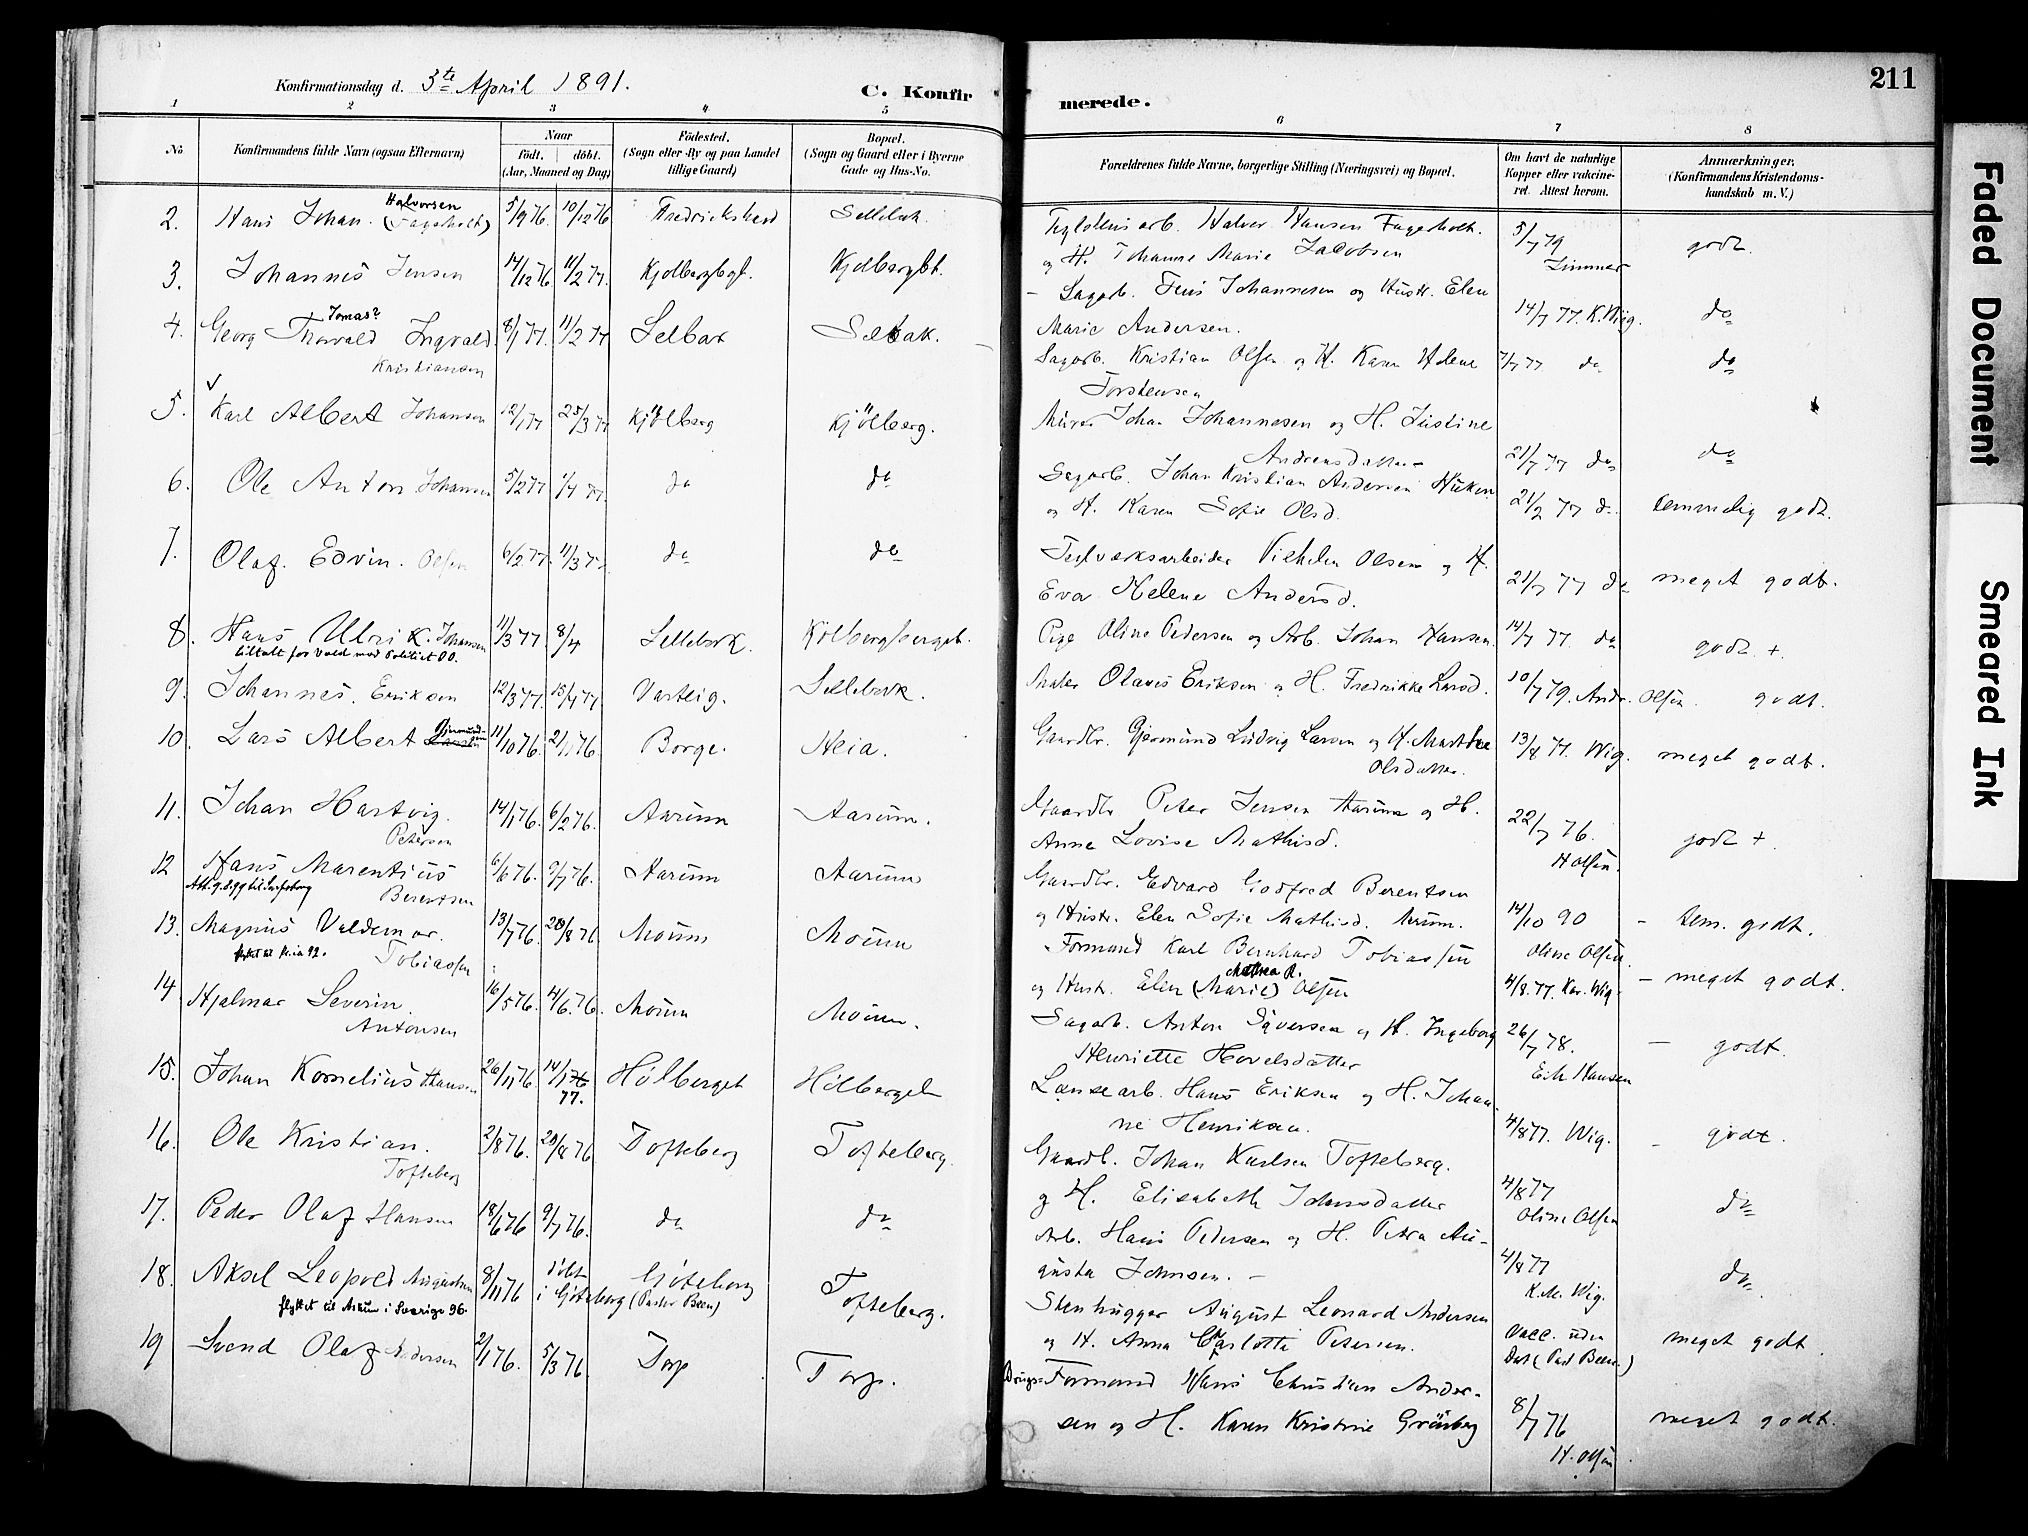 Konfirmationsdag d. 3te April 1891.
C. Konfirmerede.
211
1 2 3 4 5 6 7 8
No
Konfirmandens fulde Navn (ogsaa Efternavn)
Naar
født. døbt.
(Aar, Maaned og Dag)
Fødested.
(Sogn eller By og paa Landet tillige Gaard)
Bopæl.
(Sogn og Gaard eller i Byerne Gade og Hus-No.
Forældrenes fulde Navne, borgerlige Stilling (Næringsvei) og Bopæl.
Om havt de naturlige Kopper eller vakcineret. Attest herom.
Anmærkninger.
(Konfirmandens Kristendomskundskab m. V.)
2. Hans Johan Halvorsen (Fagerholt) 5/9 76 10/12 76 Fredrikshald Sellebak
Halvor Hansen Fagerholt
og H. Johanne Marie Jacobsen 5/7 79 godt.
3. Johannes Jensen 14/12 76 11/2 77. Kjølbergbgt. Kjølbergbt.
Sagarb. Jens Johannesen og Hustr. Elen
Marie Andersen. 14/7 77. K. Wig. do
4. Georg Thorvald Tomas? Ingvald 8/1 77. 11/2 77 Selbak Selbak.
Kristiansen
Sagarb. Kristian Olsen og H. Karen Helene 7/7 77 do do
Torstensen
5. Karl Albert Johansen 12/1 77 25/3 77 Kjölberg Kjölberg.
Murer Johan Johannesen og H. Justine
Andreasdatter 21/7 77 do do
6. Ole Anton Johansen 5/2 77 1/4 77. do do
Sagarb. Johan Kristian Andersen
og H. Karen Sofie Olsd. 21/2 77 do temmelig godt.
7. Olaf Edvin. Olsen 6/2 77. 11/3 77. do do
Teglværksarbeider Vilhelm Olsen og H.
Eva Helene Andersd. 21/7 77 do meget godt.
8. Hans Ulrik. Johansen 11/3 77 8/4 Sellebak. Kölbergberget.
tiltalt for Vold mod Politiet 00.
Pige Oline Pedersen og Arb. Johan Hansen. 14/7 77. do godt. +
9. Johannes. Eriksen 12/3 77. 15/4 77. Varteig. Sellebak.
Maler Olavus Eriksen og H. Fredrikke Larsd. 10/7 79. Andr. Olsen. godt.
10. Lars Albert Gjermundsen 11/10 76. 2/11 76. Borge. Heia.
Gaardbr. Gjermund Ludvig Larsen og H. Marthe
Olsdatter. 13/8 77. Wig. meget godt.
11. Johan Hartvig. 14/1 76. 6/2 76. Aarum Aarum.
Petersen
Gaardbr Peter Jensen Aarum og H.
Anna Lovise Mathisd. 22/7 76. H Olsen. godt +.
12 Hans Marentius 6/6 76. 9/7 76. Aarum Aarum
Berentsen
Gaardbr. Edvard Godfred Berentsen
og Hustr. Elen Sofie Mathisd. Aarum. 14/10 90 - tem. godt.
Oline Olsen
13. Magnus Valdemar. 13/7 76. 20/8 76 Moum Moum
Tobiassen
Formand Karl Bernhard Tobiassen
og Hustr. Elen (Marie) Mathea R. Olsen 4/8. 77. Kar. Wig. - meget godt.
14 Hjalmar Severin. 16/5 76. 4/6. 76. Moum Moum.
Antonsen
Sagarb. Anton Syversen og H. Ingeborg 26/7 78. - godt.
Henriette Hovelsdatter Erik Hansen
15. Johan Kornelius Hansen 26/11 76. 14/1 76 77. Hölberget Hölberget
Lænsearb. Hans Eriksen og H. Johan-
ne Henriksen. 4/8 77. Wig. - godt.
16. Ole Kristian. 2/8 76. 20/8 76 Tofteberg Tofteberg.
Tofteberg
Gaardb. Johan Karlsen Tofteberg.
og H. Elisabeth Johnsdatter 4/8 77 Oline Olsen do
17. Peder Olaf Hansen 18/6 76 9/7 76. do do
Arb. Hans Pedersen og H. Petra Au-
gusta Johnsen. - 4/8 77 K. M. Wig. do.
18. Aksel Leopold Augustsen 8/11 76 döbt i Göteborg Göteborg (Pastor Been) Tofteberg.
flyttet til Askum i Sverige 96.
Stenhugger August Leonard Andersen
og H. Anna Carlotta Petersen. Vacc. uden Dat (Past Been.) meget godt.
19 Svend Olaf Andersen 2/1 76. 5/3 76. Torp Torp.
Brugs-Formand Hans Christian Ander-
sen og H. Karen Kristine Grönberg 8/7 76 H. Olsen meget godt.
Faded Document
Smeared Ink